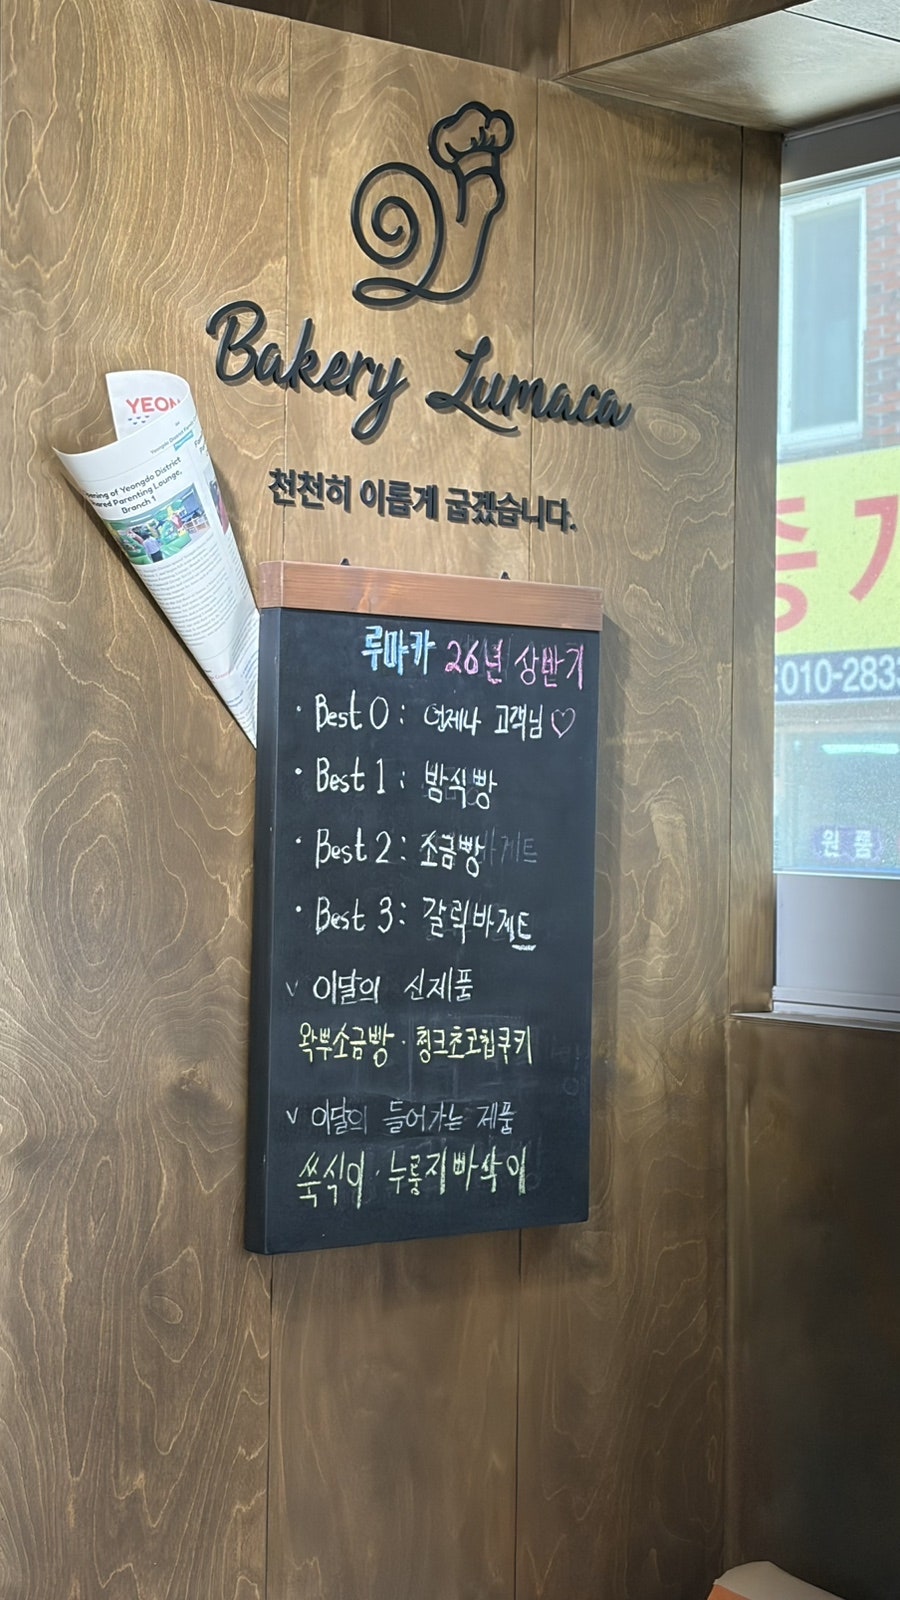 Bakery Lumaca
천천히 이롭게 굽겠습니다.
YEON
Yeongdo District
Opening of Yeongdo District
Shared Parenting Lounge,
Branch 1
루마카 26년 상반기
· Best 0 : 언제나 고객님 ♡
· Best 1 : 밤식빵
· Best 2 : 소금빵
· Best 3 : 갈릭바게트
v 이달의 신제품
왁뿌소금빵 · 청크초코칩쿠키
v 이달의 들어가는 제품
쑥식이 · 누룽지빠삭이
중개
:010-2833
원룸